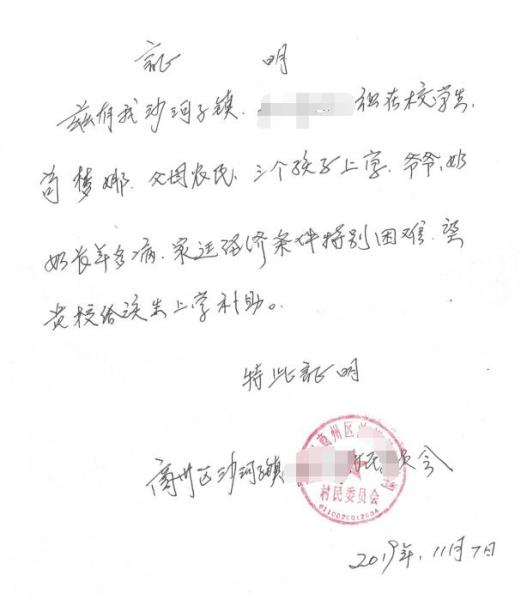 证 明
兹有我沙河子镇 组在校学生,
苟梦娜. 父母农民, 三个孩子上学. 爷爷、奶
奶长年多病, 家运经济条件特别困难. 望
贵校给该生上学补助。
特此证明
商州区沙河子镇 民 会
商州区
村民委员会
2019年, 11月7日